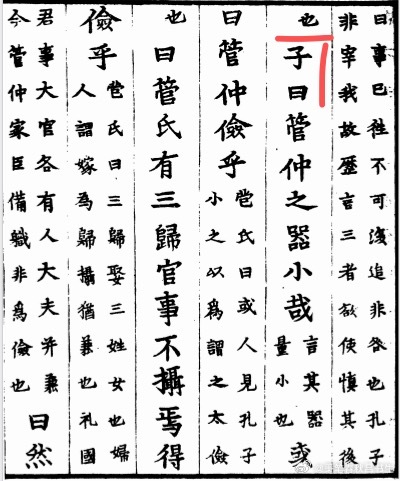 曰事已徃不可復追非咎也孔子
非宰我故歷言三者欲使慎其後
也子曰管仲之器小哉
言其器
量小也
或
曰管仲儉乎
苞氏曰或人見孔子
小之以為謂之太儉
也曰管氏有三歸官事不攝焉得
儉乎
苞氏曰三歸娶三姓女也婦
人謂嫁為歸攝猶兼也礼國
君事大官各有人大夫并兼
今管仲家臣備職非為儉也
曰然